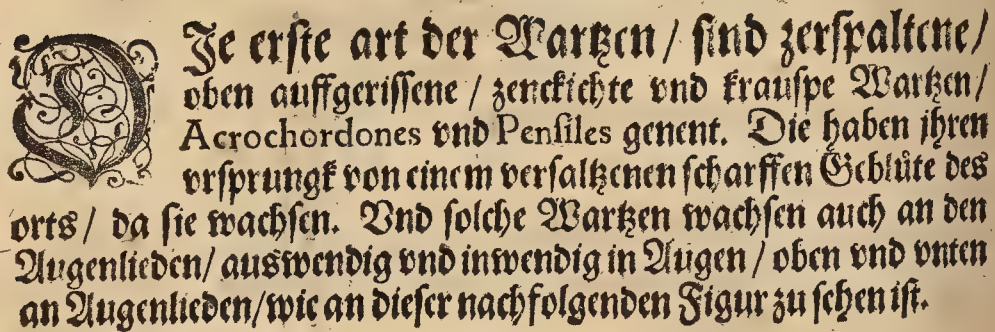 DIe erste art der Wartzen / sind zerspaltene /
oben auffgerissene / zenckichte vnd krauspe Wartzen /
Acrochordones vnd Pensiles genent. Die haben jhren
vrsprungk von einem versaltzenen scharffen Geblüte des
orts / da sie wachsen. Vnd solche Wartzen wachsen auch an den
Augenlieden / auswendig vnd inwendig in Augen / oben vnd vnten
an Augenlieden / wie an dieser nachfolgenden Figur zu sehen ist.